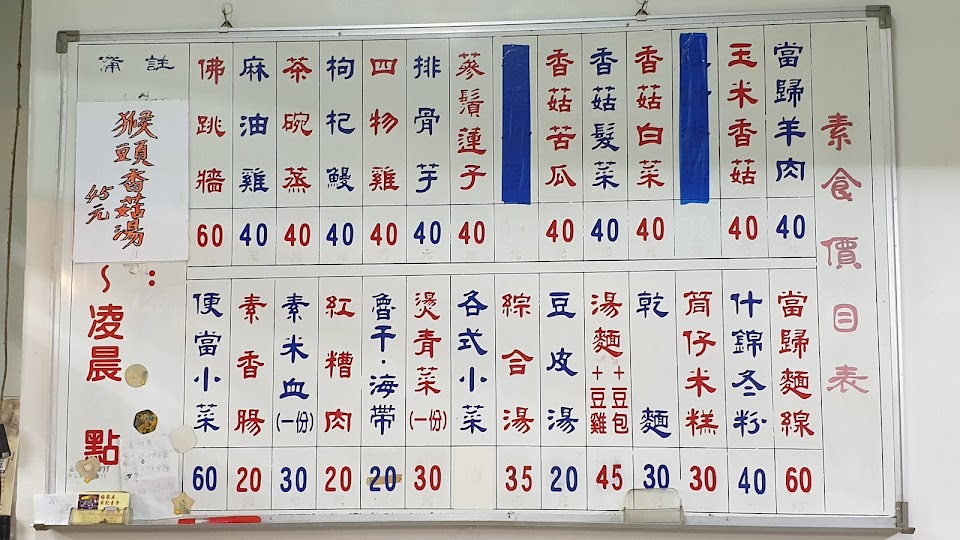 素食價目表
當歸羊肉 40
玉米香菇 40
香菇白菜 40
香菇髮菜 40
香菇苦瓜 40
蔘鬚蓮子 40
排骨芋 40
四物雞 40
枸杞鰻 40
茶碗蒸 40
麻油雞 40
佛跳牆 60
備註
猴頭香菇湯
45元
當歸麵線 60
什錦冬粉 40
筒仔米糕 30
乾麵 30
湯麵+豆雞+豆包 45
豆皮湯 20
綜合湯 35
各式小菜
燙青菜(一份) 30
魯干·海帶 20
紅糟肉 20
素米血(一份) 30
素香腸 20
便當小菜 60
:
~凌晨 點